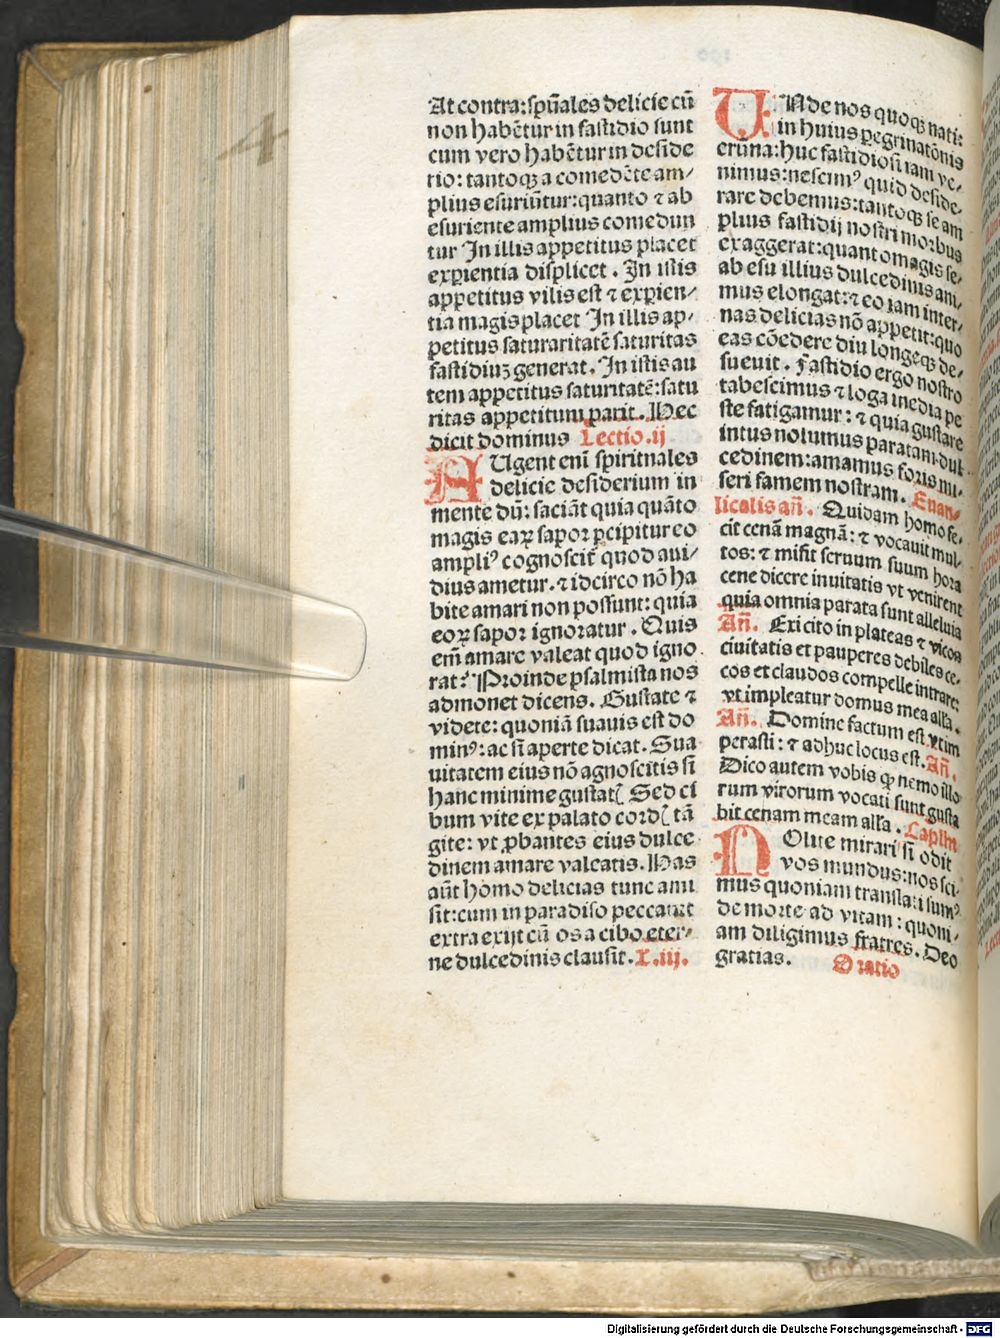 4
At contra: spũales delicie cũ
non habẽtur in fastidio sunt
cum vero habẽtur in deside
rio: tantoqꝫ a comedẽte am-
plius esuriũtur: quanto ⁊ ab
esuriente amplius comedun
tur In illis appetitus placet
experientia displicet. In istis
appetitus vilis est ⁊ experien-
tia magis placet In illis ap-
petitus saturaritatẽ saturitas
fastidiuꝫ generat. In istis au
tem appetitus saturitatẽ: satu
ritas appetitum parit. Hec
dicit dominus Lectio.ij
AUgent enĩ spiritnales
delicie desiderium in
mente dũ: saciãt quia quãto
magis eaꝝ sapor ꝑcipitur eo
ampliꝰ cognoscit̃ quod aui-
dius ametur. ⁊ idcirco nõ ha
bite amari non possunt: quia
eoꝝ sapor ignoratur. Quis
em̃ amare valeat quod igno
rat? Proinde psalmista nos
admonet dicens. Gustate ⁊
videte: quoniã suauis est do
minꝰ: ac si aperte dicat. Sua
uitatem eius nõ agnoscitis si
hanc minime gustatꝭ Sed ci
bum vite ex palato cordꝭ tã
gite: vt ꝓbantes eius dulce
dinem amare valeatis. Has
aũt homo delicias tunc ami
sit: cum in paradiso peccauit
extra exijt cũ os a cibo eter-
ne dulcedinis clausit. L.iij.
UNde nos quoqꝫ nati:
in huius peregrinatõnis
erũna: huc fastidiosi iam ve-
nimus: nescimꝰ quid deside-
rare debemus: tantoqꝫ se am
plius fastidij nostri morbus
exaggerat: quanto magis se-
ab esu illius dulcedinis ani-
mus elongat: ⁊ eo iam inter-
nas delicias nõ appetit: quo
eas cõedere diu longeqꝫ de-
sueuit. Fastidio ergo nostro
tabescimus ⁊ lõga inedia pe
ste fatigamur: ⁊ quia gustare
intus nolumus paratam dul
cedinem: amamus foris mi-
seri famem nostram. Euan-
licalis añ. Quidam homo fe-
cit cenã magnã: ⁊ vocauit mul-
tos: ⁊ misit seruum suum hora
cene dicere inuitatis vt venirent
quia omnia parata sunt alleluia
Añ. Exi cito in plateas ⁊ vicos
ciuitatis et pauperes debiles ce-
cos et claudos compelle intrare:
vt impleatur domus mea alľa.
Añ. Domine factum est vt im
perasti: ⁊ adhuc locus est. Añ.
Dico autem vobis ꝙ nemo illo
rum virorum vocati sunt gusta
bit cenam meam alľa. Caplm
NOlite mirari si odit
vos mundus: nos sci-
mus quoniam translati sumꝰ
de morte ad vitam: quoni-
am diligimus fratres. Deo
gratias. Oratio
Digitalisierung gefördert durch die Deutsche Forschungsgemeinschaft - DFG